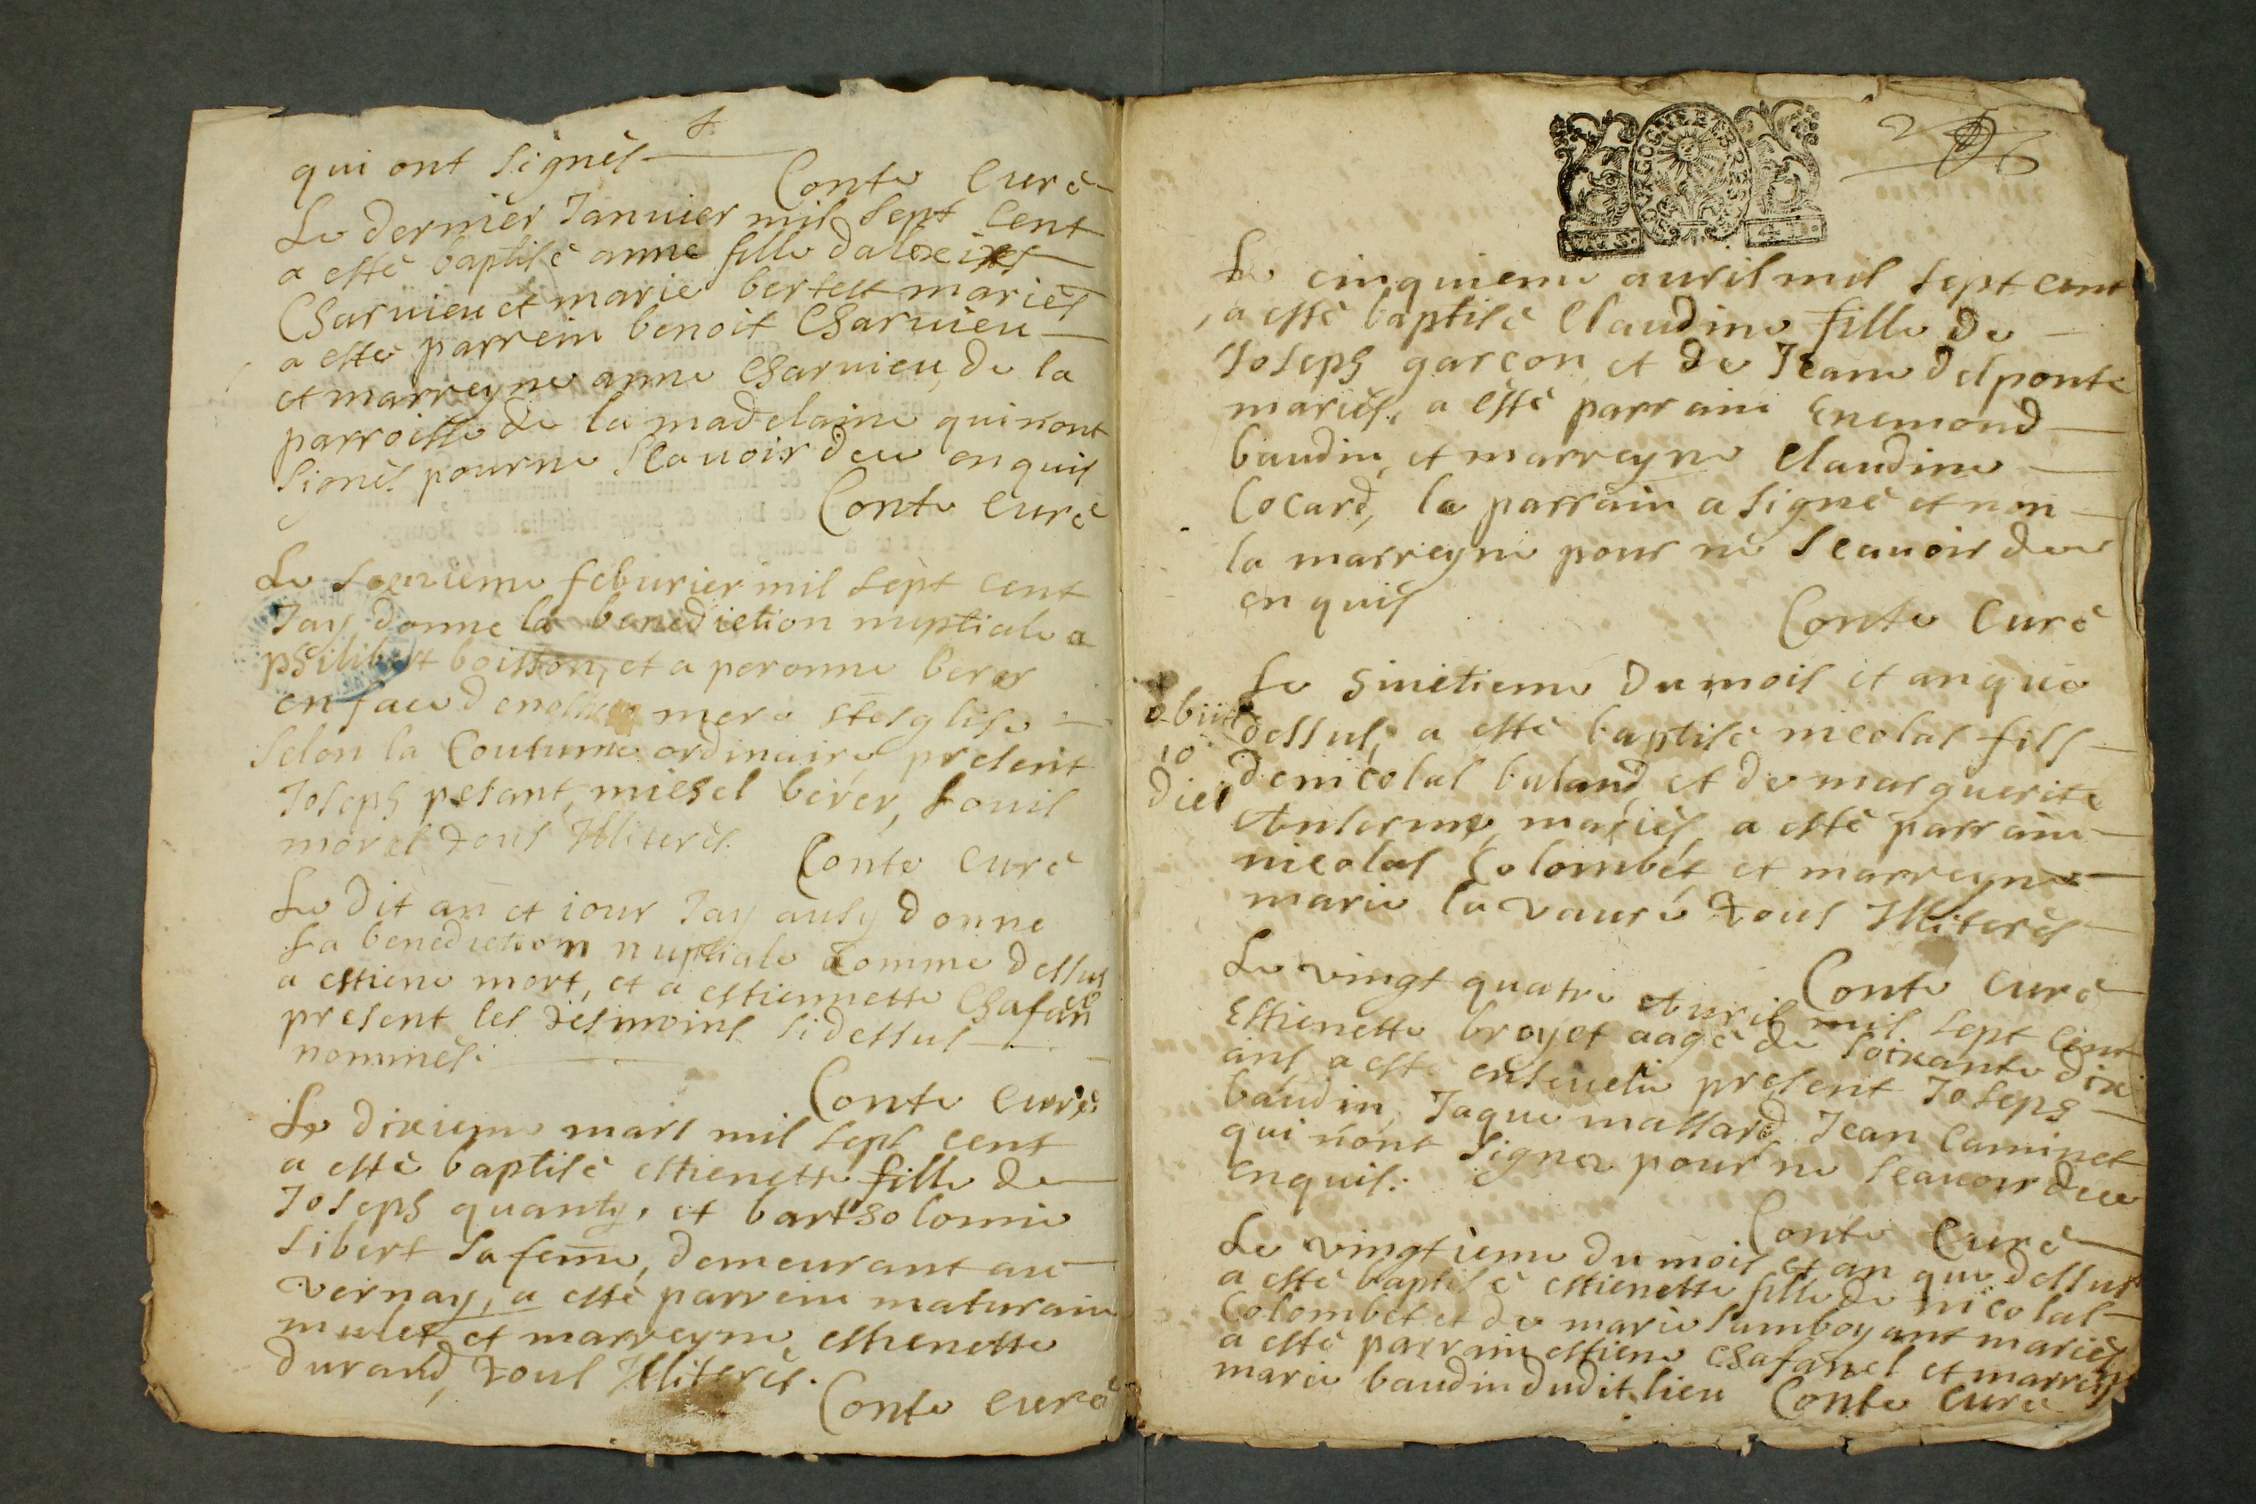 qui ont signès
Conte Curé
Le dernier Januier mil sept cent
a estè baptisè anne fille dalexies
Charuieu et marie bertet mariès
a estè parrein benoit Charuieu
et marreyne anne Charuieu, de la
parroisse de la madelaine qui nont
signès pour ne scauoir deu enquis
Conte Curé
Le feburier mil sept cent
Jay donne la benediction nuptiale a
philibert boisson, et a peronne berer
en face de nostre mere ste esglise
selon la Coutume ordinaire present
Joseph pesant, michel berer, Louis
morel tous Illiterès.
Conte Curé
Le dit an et iour Jay ausy donne
La benediction nuptiale Comme dessus
a estiene mort, et a estiennette Chafanel
present les tesmoins sidessus
nommès.
Conte Curé
Le dixieme mars mil sept cent
a estè baptisè estienette fille de
Joseph quanty, et bartholomie
sibert sa feme, demeurant au
vernay, a estè parrein maturain
mulet et marreyne, estienette
durand, tous Illiterès.
Conte Curé
2
BOVRGOGNE ET BRESSE
S. 4 D.
Le cinquieme auril mil sept cent
a estè baptisè Claudine fille de
Joseph garcon, et de Jeane delponte
mariès, a estè parrain Enemond
baudin, et marreyne Claudine
Cocard, le parrain a signè et non
la marreyne pour ne scauoir deue
enquis
Conte Curé
Le du mois et an que
dessus, a estè baptisè nicolas fils
de nicolas buland, et de marguerite
mariès, a estè parrain
nicolas Colombet et marreyne
marie la vaure tous Illiterès
obiit
10
dies
Conte Curé
Le vingt quatre Auril mil sept cent
Estienette broyet aagè de soixante dix
ans a estè enseuelie present Joseph
baudin, Jaque massard, Jean Caminet
qui nont signer pour ne scauoir deue
enquis.
Conte Curé
Le vingtieme du mois et an que dessus
a estè baptisè estienette fille de nicolas
Colombet et de marie samboyant mariès
a estè parrain estiene Chafanel et marreyne
marie baudin dudit lieu Conte Curé